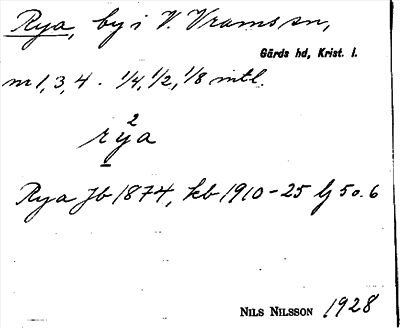 Rya, by i V. Vrams sn,
Gärds hd, Krist. l.
nr 1, 3, 4 - 1/4, 1/2, 1/8 mtl.
2
rya
Rya Jb 1874, kb 1910-25 lj 50. 6
NILS NILSSON 1928